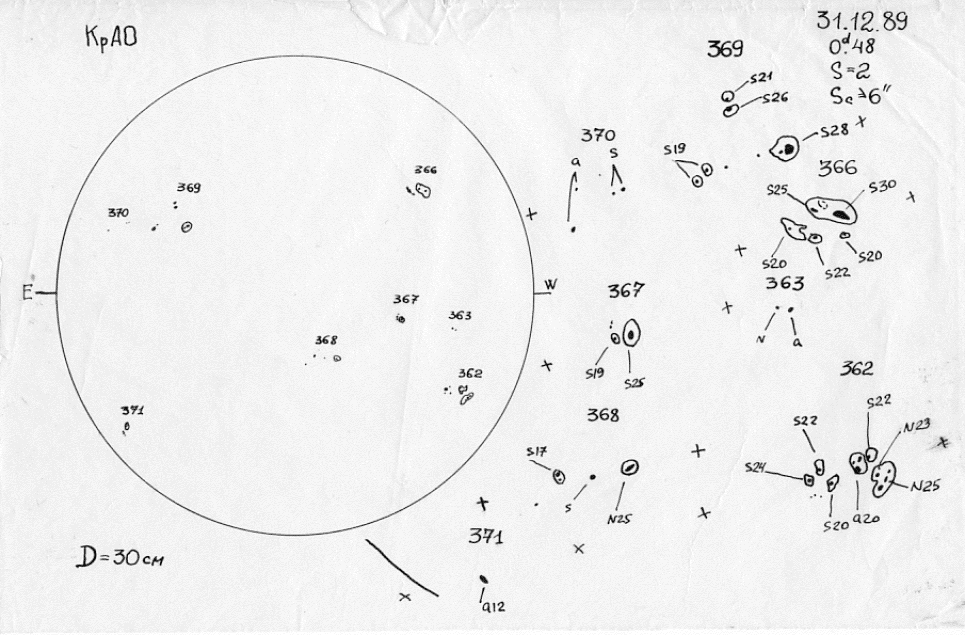 КрАО
31.12.89
0d.48
S=2
Sc≥6"
369
S21
S26
S28
S19
370
a
S
366
S25
S30
S20
S22
S20
363
N
a
367
S19
S25
362
S22
S22
N23
S24
N25
S20
a20
368
S17
S
N25
371
a12
E
W
370
369
366
367
363
368
362
371
D=30см